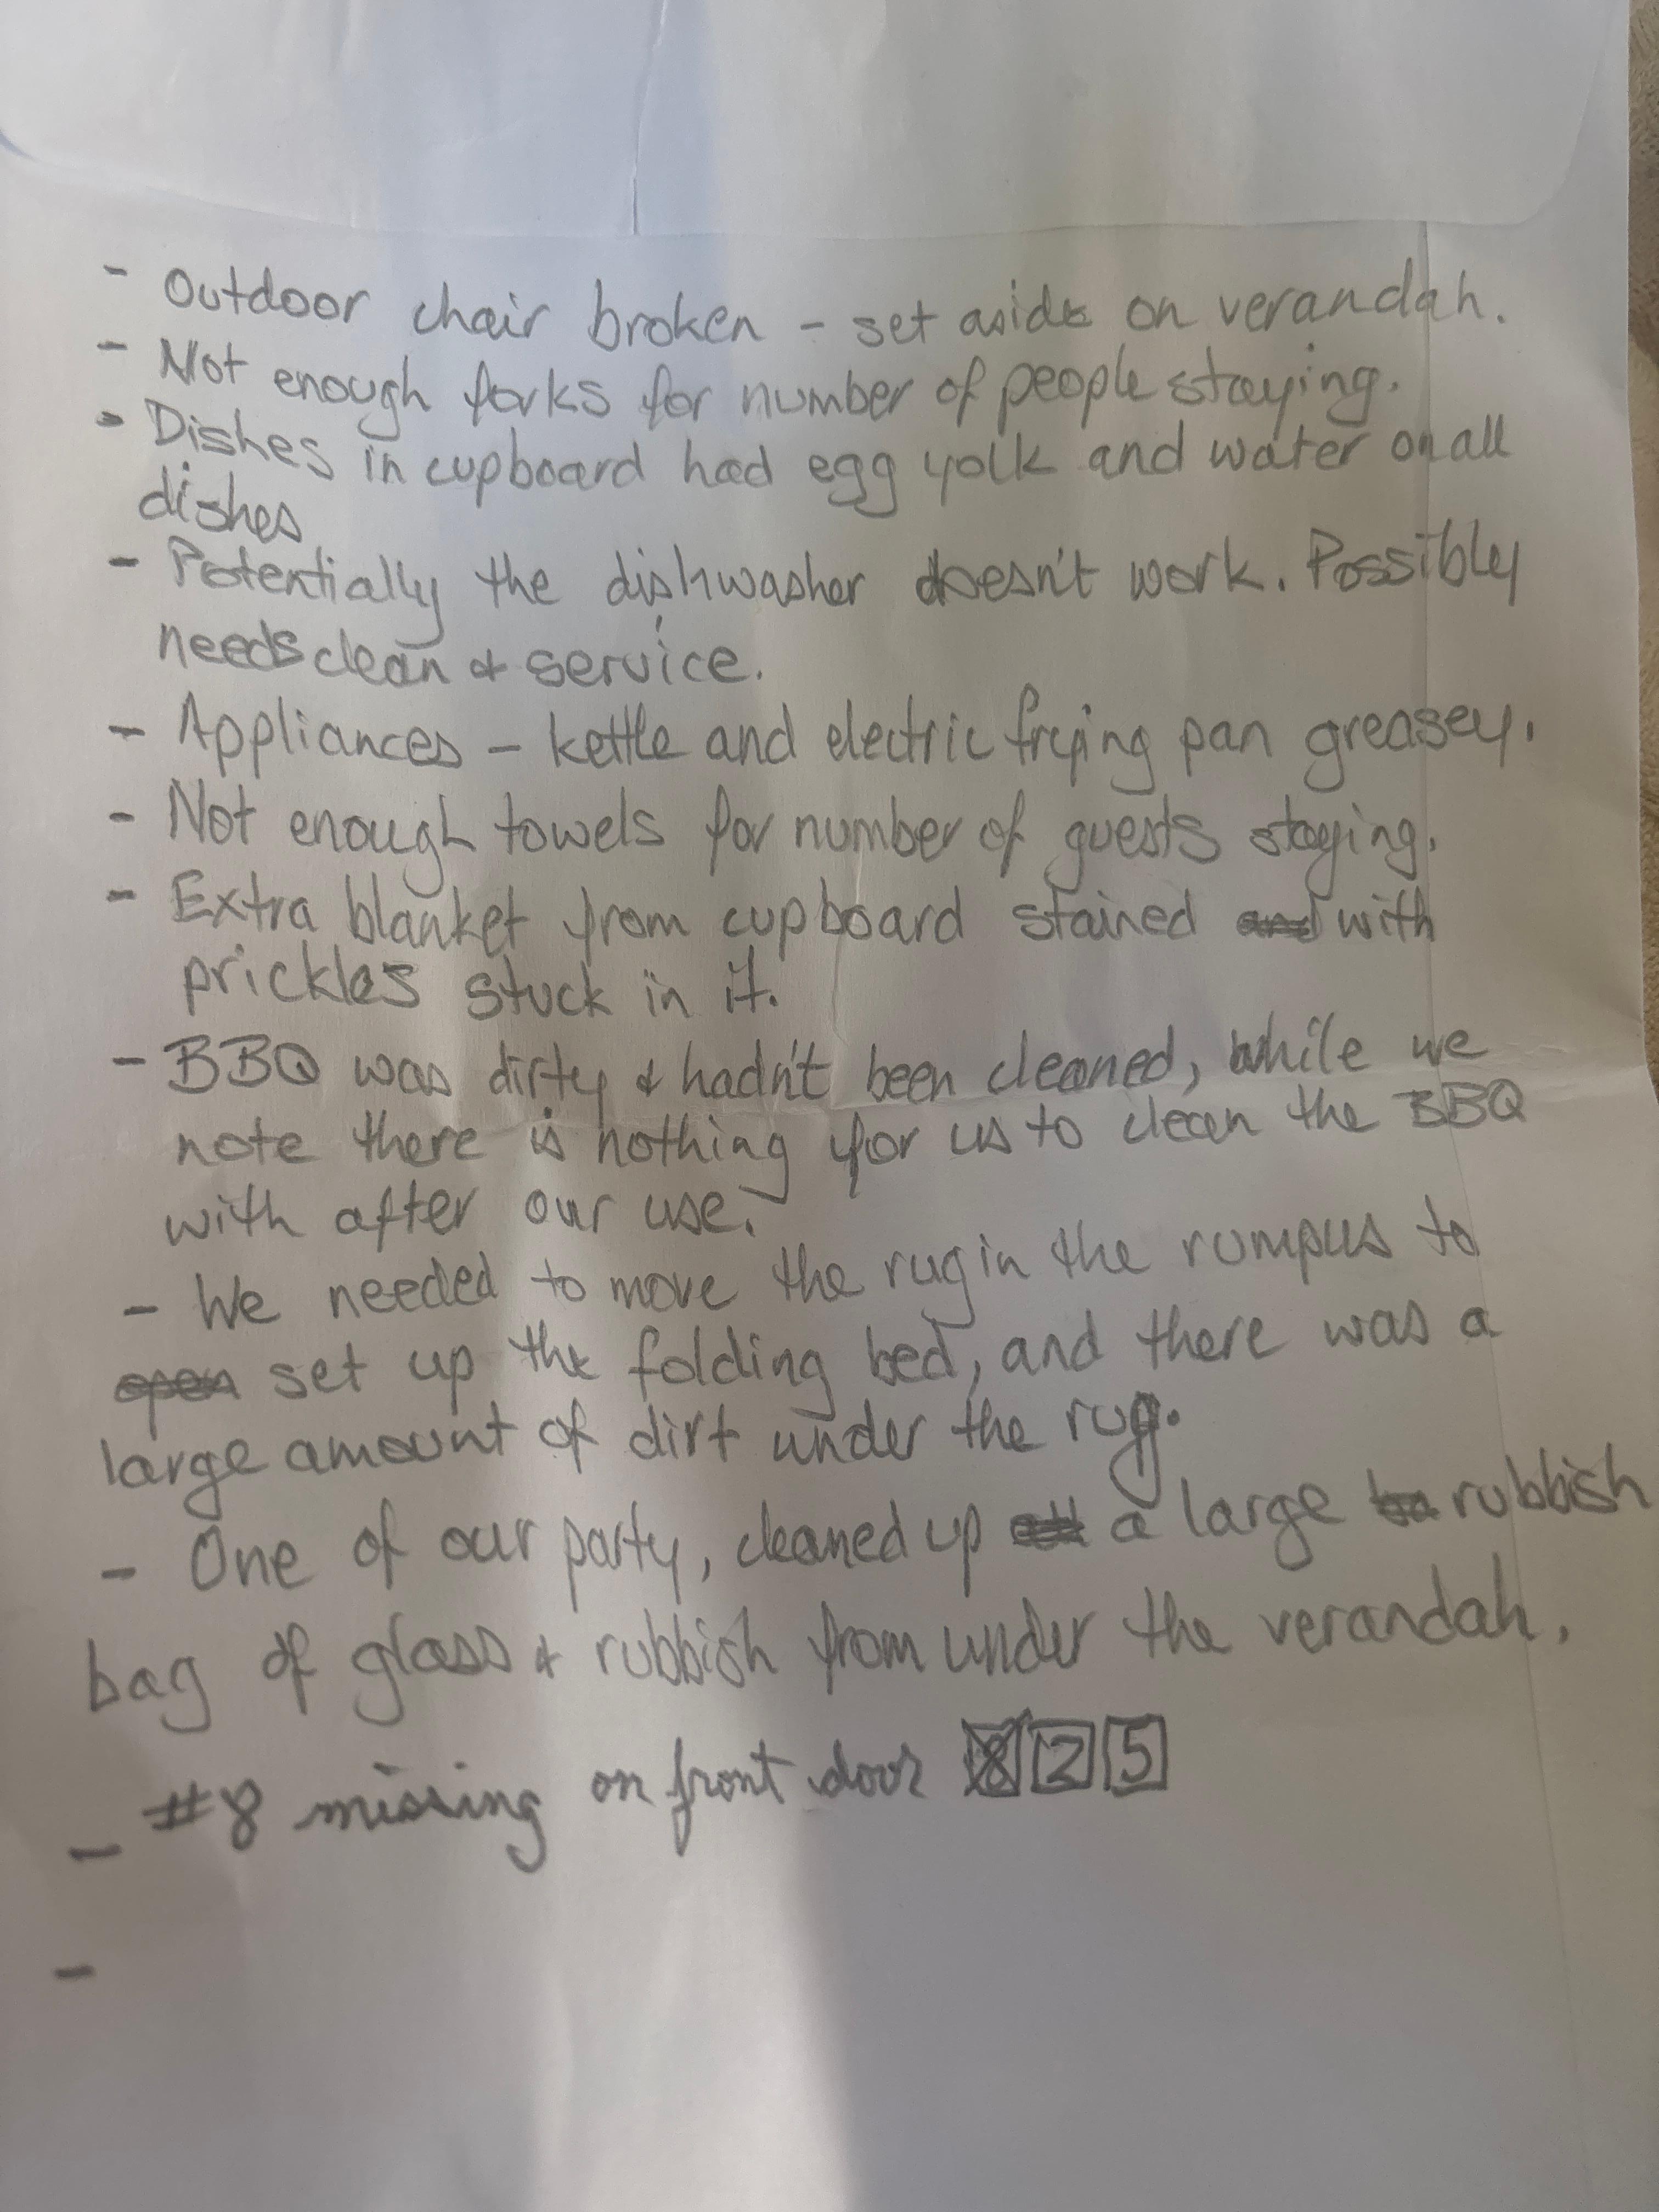 - Outdoor chair broken - set aside on verandah.
- Not enough forks for number of people staying.
- Dishes in cupboard had egg yolk and water on all
dishes
- Potentially the dishwasher doesn't work. Possibly
needs clean & service.
- Appliances - kettle and electric frying pan greasey.
- Not enough towels for number of guests staying.
- Extra blanket from cupboard stained and with
prickles stuck in it.
- BBQ was dirty & hadn't been cleaned, while we
note there is nothing for us to clean the BBQ
with after our use.
- We needed to move the rug in the rumpus to
open set up the folding bed, and there was a
large amount of dirt under the rug.
- One of our party, cleaned up a large ba rubbish
bag of glass & rubbish from under the verandah.
- #8 missing on front door 8 2 5
-